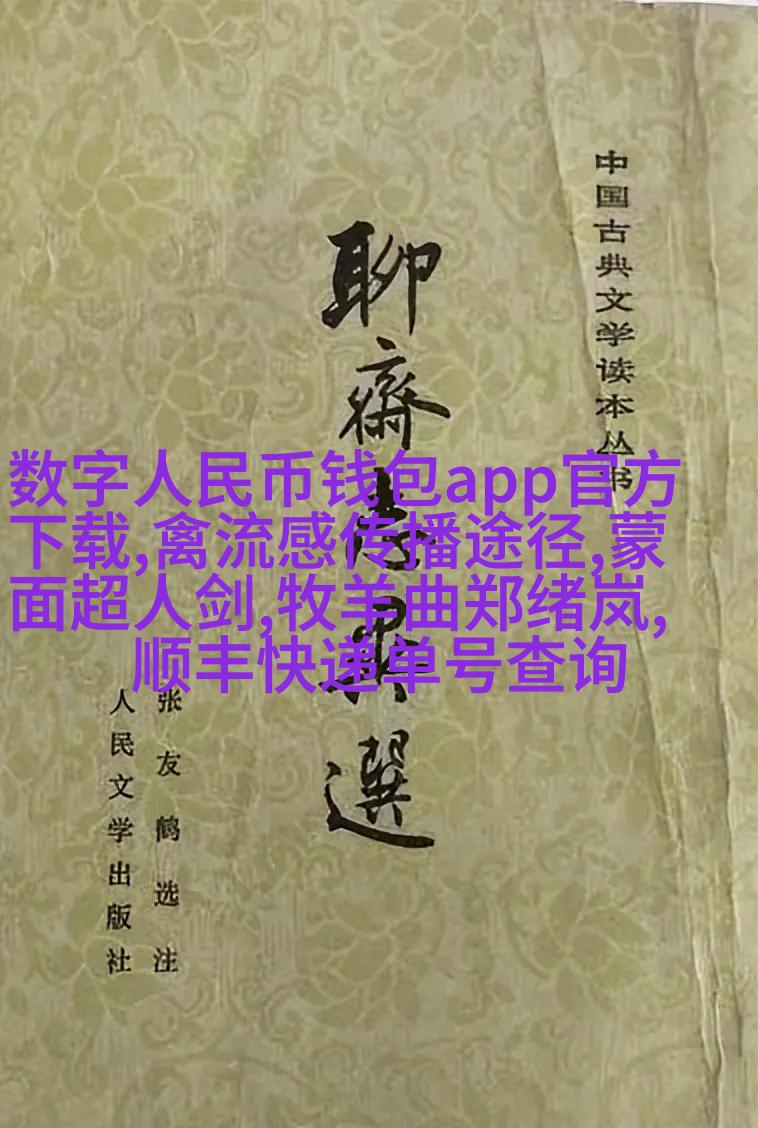 中国古典文学读本丛书
聊齋志異選
数字人民币钱包app官方
下载,禽流感传播途径,蒙
面超人剑,牧羊曲郑绪岚,
顺丰快递单号查询
张友鹤选注
人民文学出版社